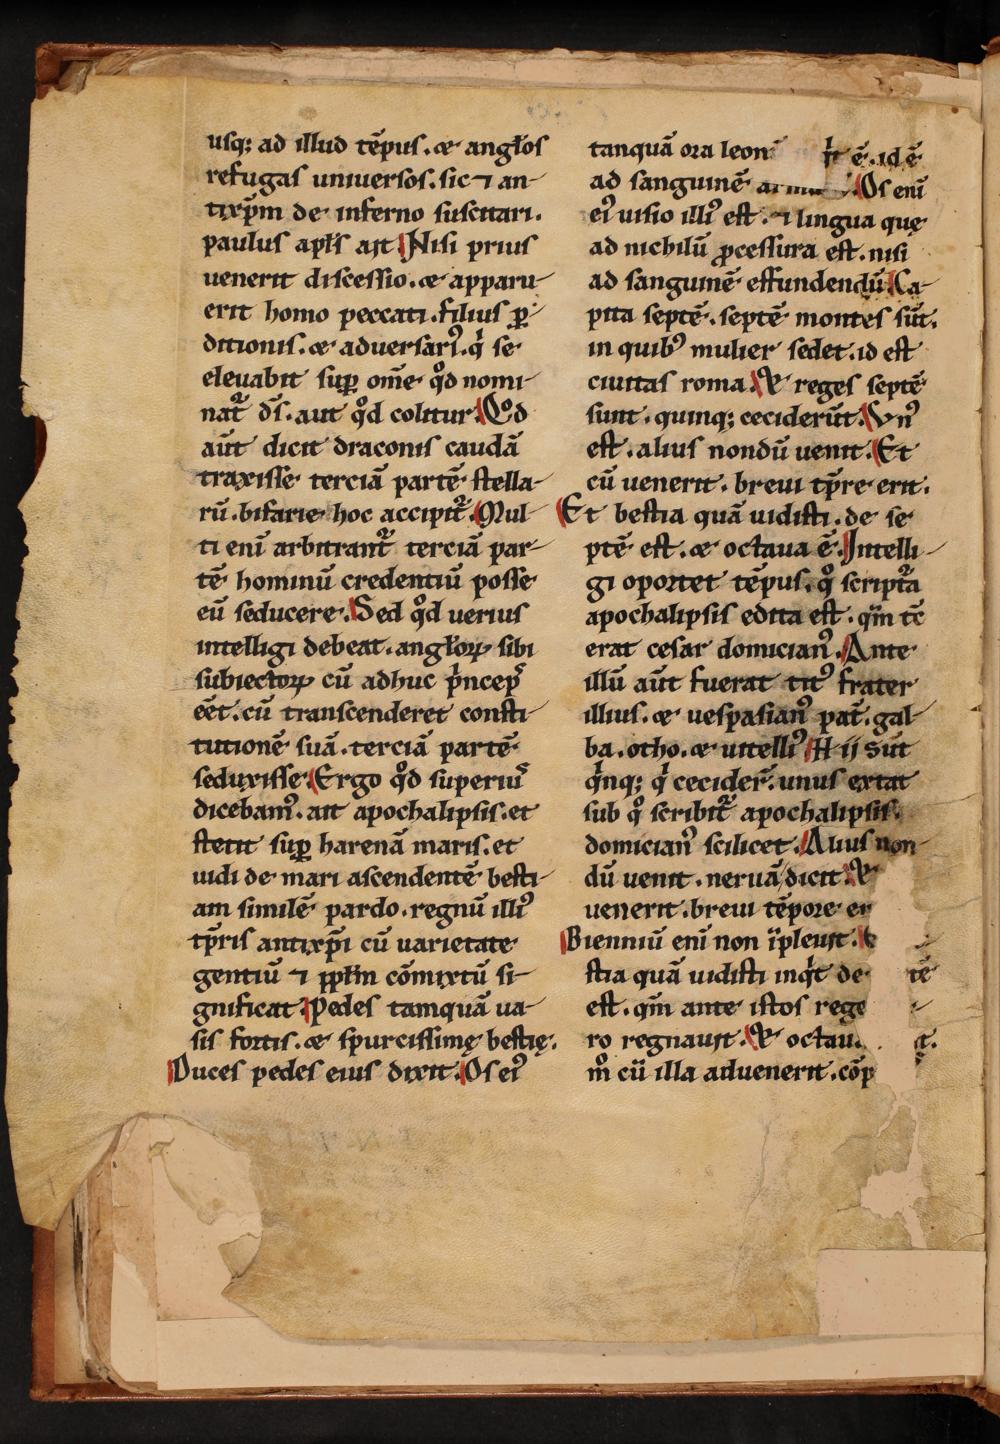 usq; ad illud tēpus. & angłos
refugas uniuersos. sic ⁊ an-
tixp̄m de inferno suscitari.
paulus apl̄s ait Nisi prius
uenerit discessio. & apparu-
erit homo peccati. filius ꝑ-
ditionis. & aduersariꝰ. q̇ se
eleuabit suꝑ om̄e qd̊ nomi-
nat᷑ d̄s. aut qd̊ colitur. Qd̊
aūt dicit draconis caudā
traxisse terciā partē stella-
rū. bifarie hoc accipit᷑. Mul-
ti enī arbitrant᷑ terciā par-
tē hominū credentiū posse
eū seducere. Sed qd̊ uerius
intelligi debeat. angłoꝝ sibi
subiectoꝝ cū adhuc p̍ncepˢ
eēt. cū transcenderet consti-
tutionē suā. terciā partē
seduxisse. Ergo qd̊ superiuˢ
dicebamꝰ. ait apochalipsis. et
stetit suꝑ harenā maris. et
uidi de mari ascendentē besti-
am similē pardo. regnū illiꝰ
tp̄ris antixp̄i cū uarietate
gentiū ⁊ ppl̄m cōmixtū si-
gnificat. Pedes tamquā ua-
sis fortis. & spurcissimę bestię.
Duces pedes eius dixit. Os eiꝰ
tanquā ora leon ē. id ē
ad sanguinē Os enī
eiꝰ uisio illiꝰ est. ⁊ lingua quę
ad nichilū ꝓcessura est. nisi
ad sanguinē effundendū. Ca-
pita septē. septē montes sūt.
in quibꝰ mulier sedet. id est
ciuitas roma. & reges septē
sunt. quinq; ceciderūt. Vnꝰ
est. alius nondū uenit. Et
cū uenerit. breui tp̄re erit.
Et bestia quā uidisti. de se
ptē est. & octaua ē. Intelli-
gi oportet tēpus. q̊ scriptᷓa
apochalipsis edita est. qm̄ tc̄
erat cesar domicianꝰ. Ante
illū aūt fuerat titꝰ frater
illius. & uespasianꝰ pat̄. gal-
ba. otho. & uitelliꝰ Hij sūt
q̍nq; q̍ ceciderᷤ. unus extat
sub q̊ scribit᷑ apochalipsis.
domicianꝰ scilicet. Alius non-
dū uenit. neruā dicit. &
uenerit. breui tēpore er
Bienniū enī non īpleuit.
stia quā uidisti inq̍t de tē
est. qm̄ ante istos rege
ro regnauit. & octau
m̊ cū illa aduenerit. cōp